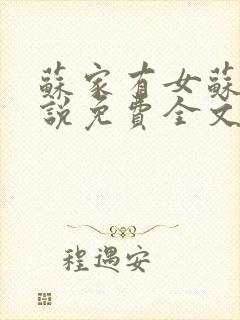 蘇家有女蘇
說免費全文
程遇安